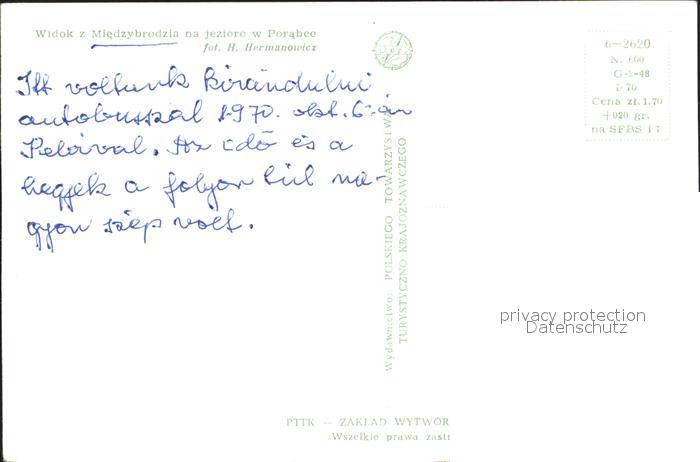 Widok z Międzybrodzia na jezioro w Porąbce
fot. H. Hermanowicz
Itt voltunk kirándulni
autobusszal 1970. okt. 6-án
az idő és a
hegyek a folyón túl na-
gyon szép volt.
Wydawnictwo: POLSKIEGO TOWARZYSTWA
TURYSTYCZNO KRAJOZNAWCZEGO
6—2620
N. 660
G-5-48
I-70
Cena zł. 1.70
+020 gr.
na SFBS i I
privacy protection
Datenschutz
PTTK — ZAKŁAD WYTWÓR
Wszelkie prawa zastr